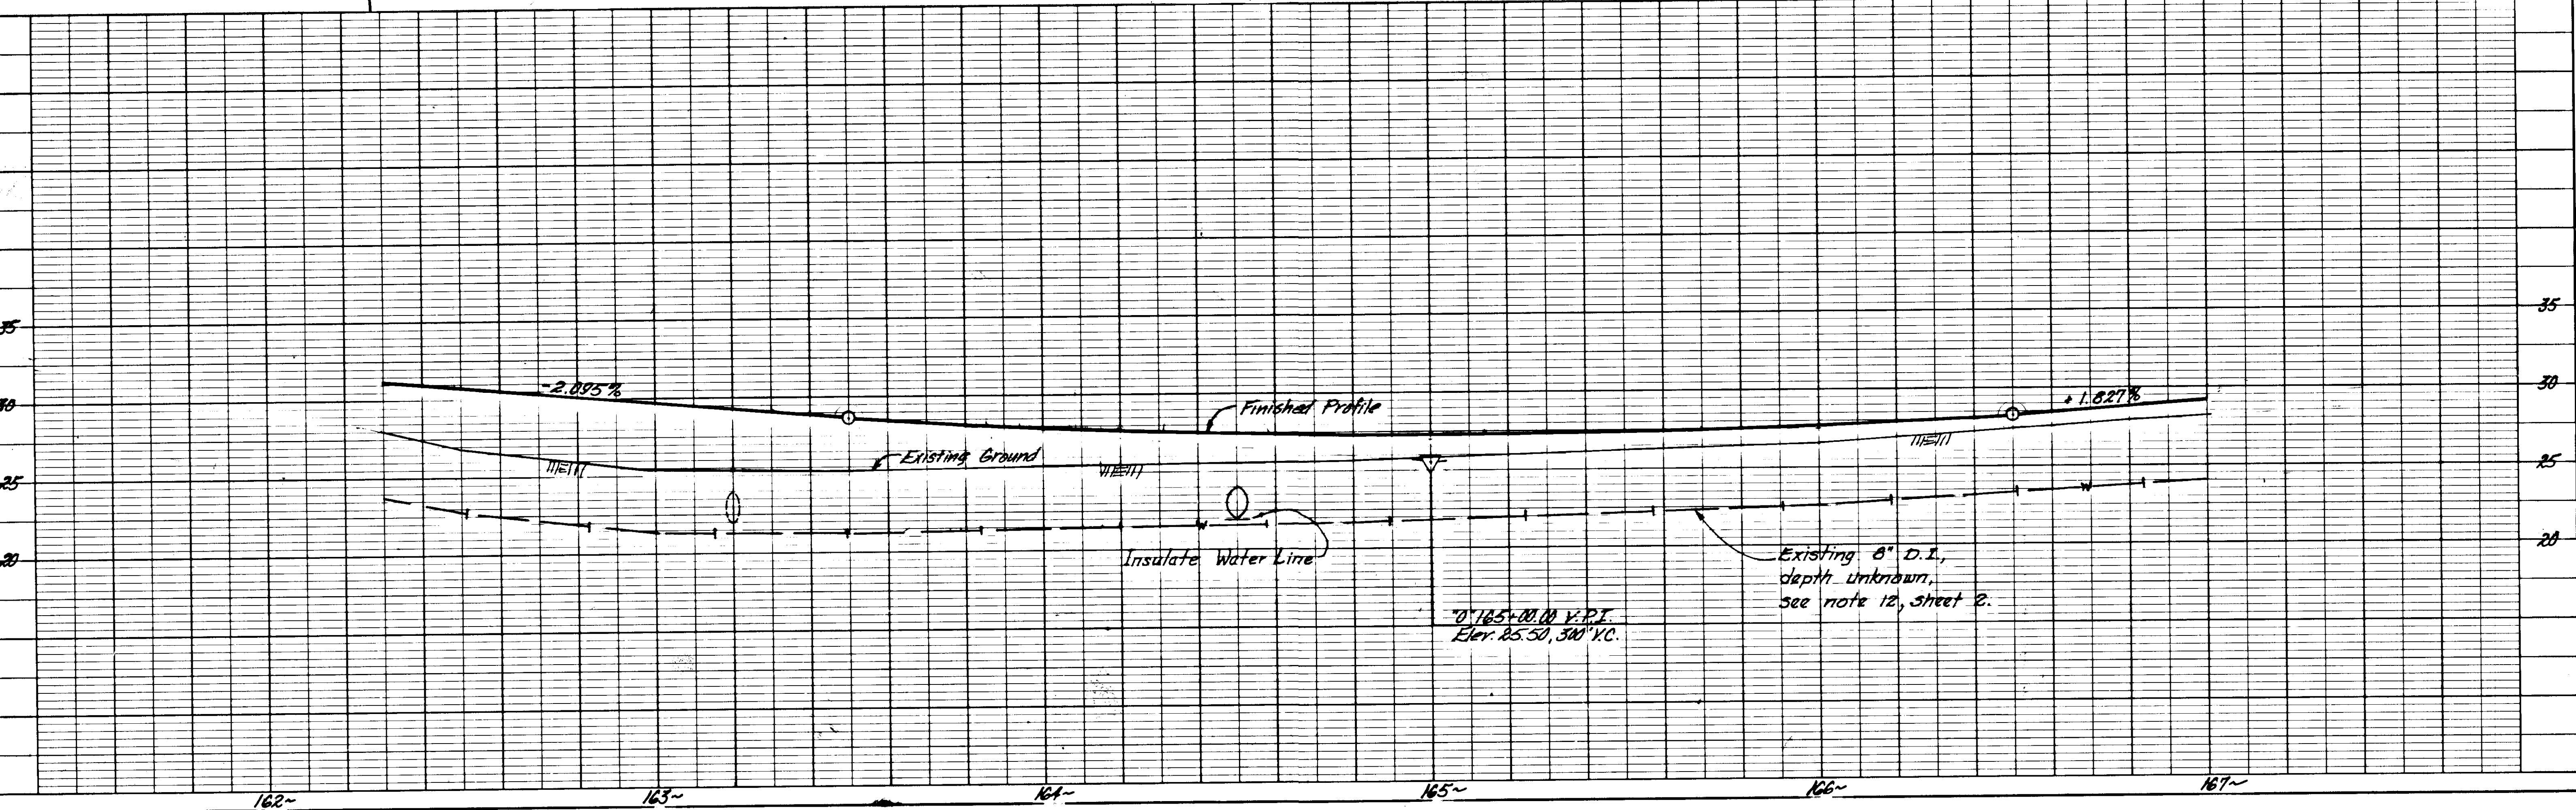 35
35
30
-2.095%
Finished Profile
+1.827%
30
Existing Ground
25
25
W
W
20
Insulate Water Line
Existing 8" D.I.,
depth unknown,
see note 12, sheet 2.
20
"O" 165+00.00 V.P.I.
Elev. 25.50, 300' V.C.
162~
163~
164~
165~
166~
167~